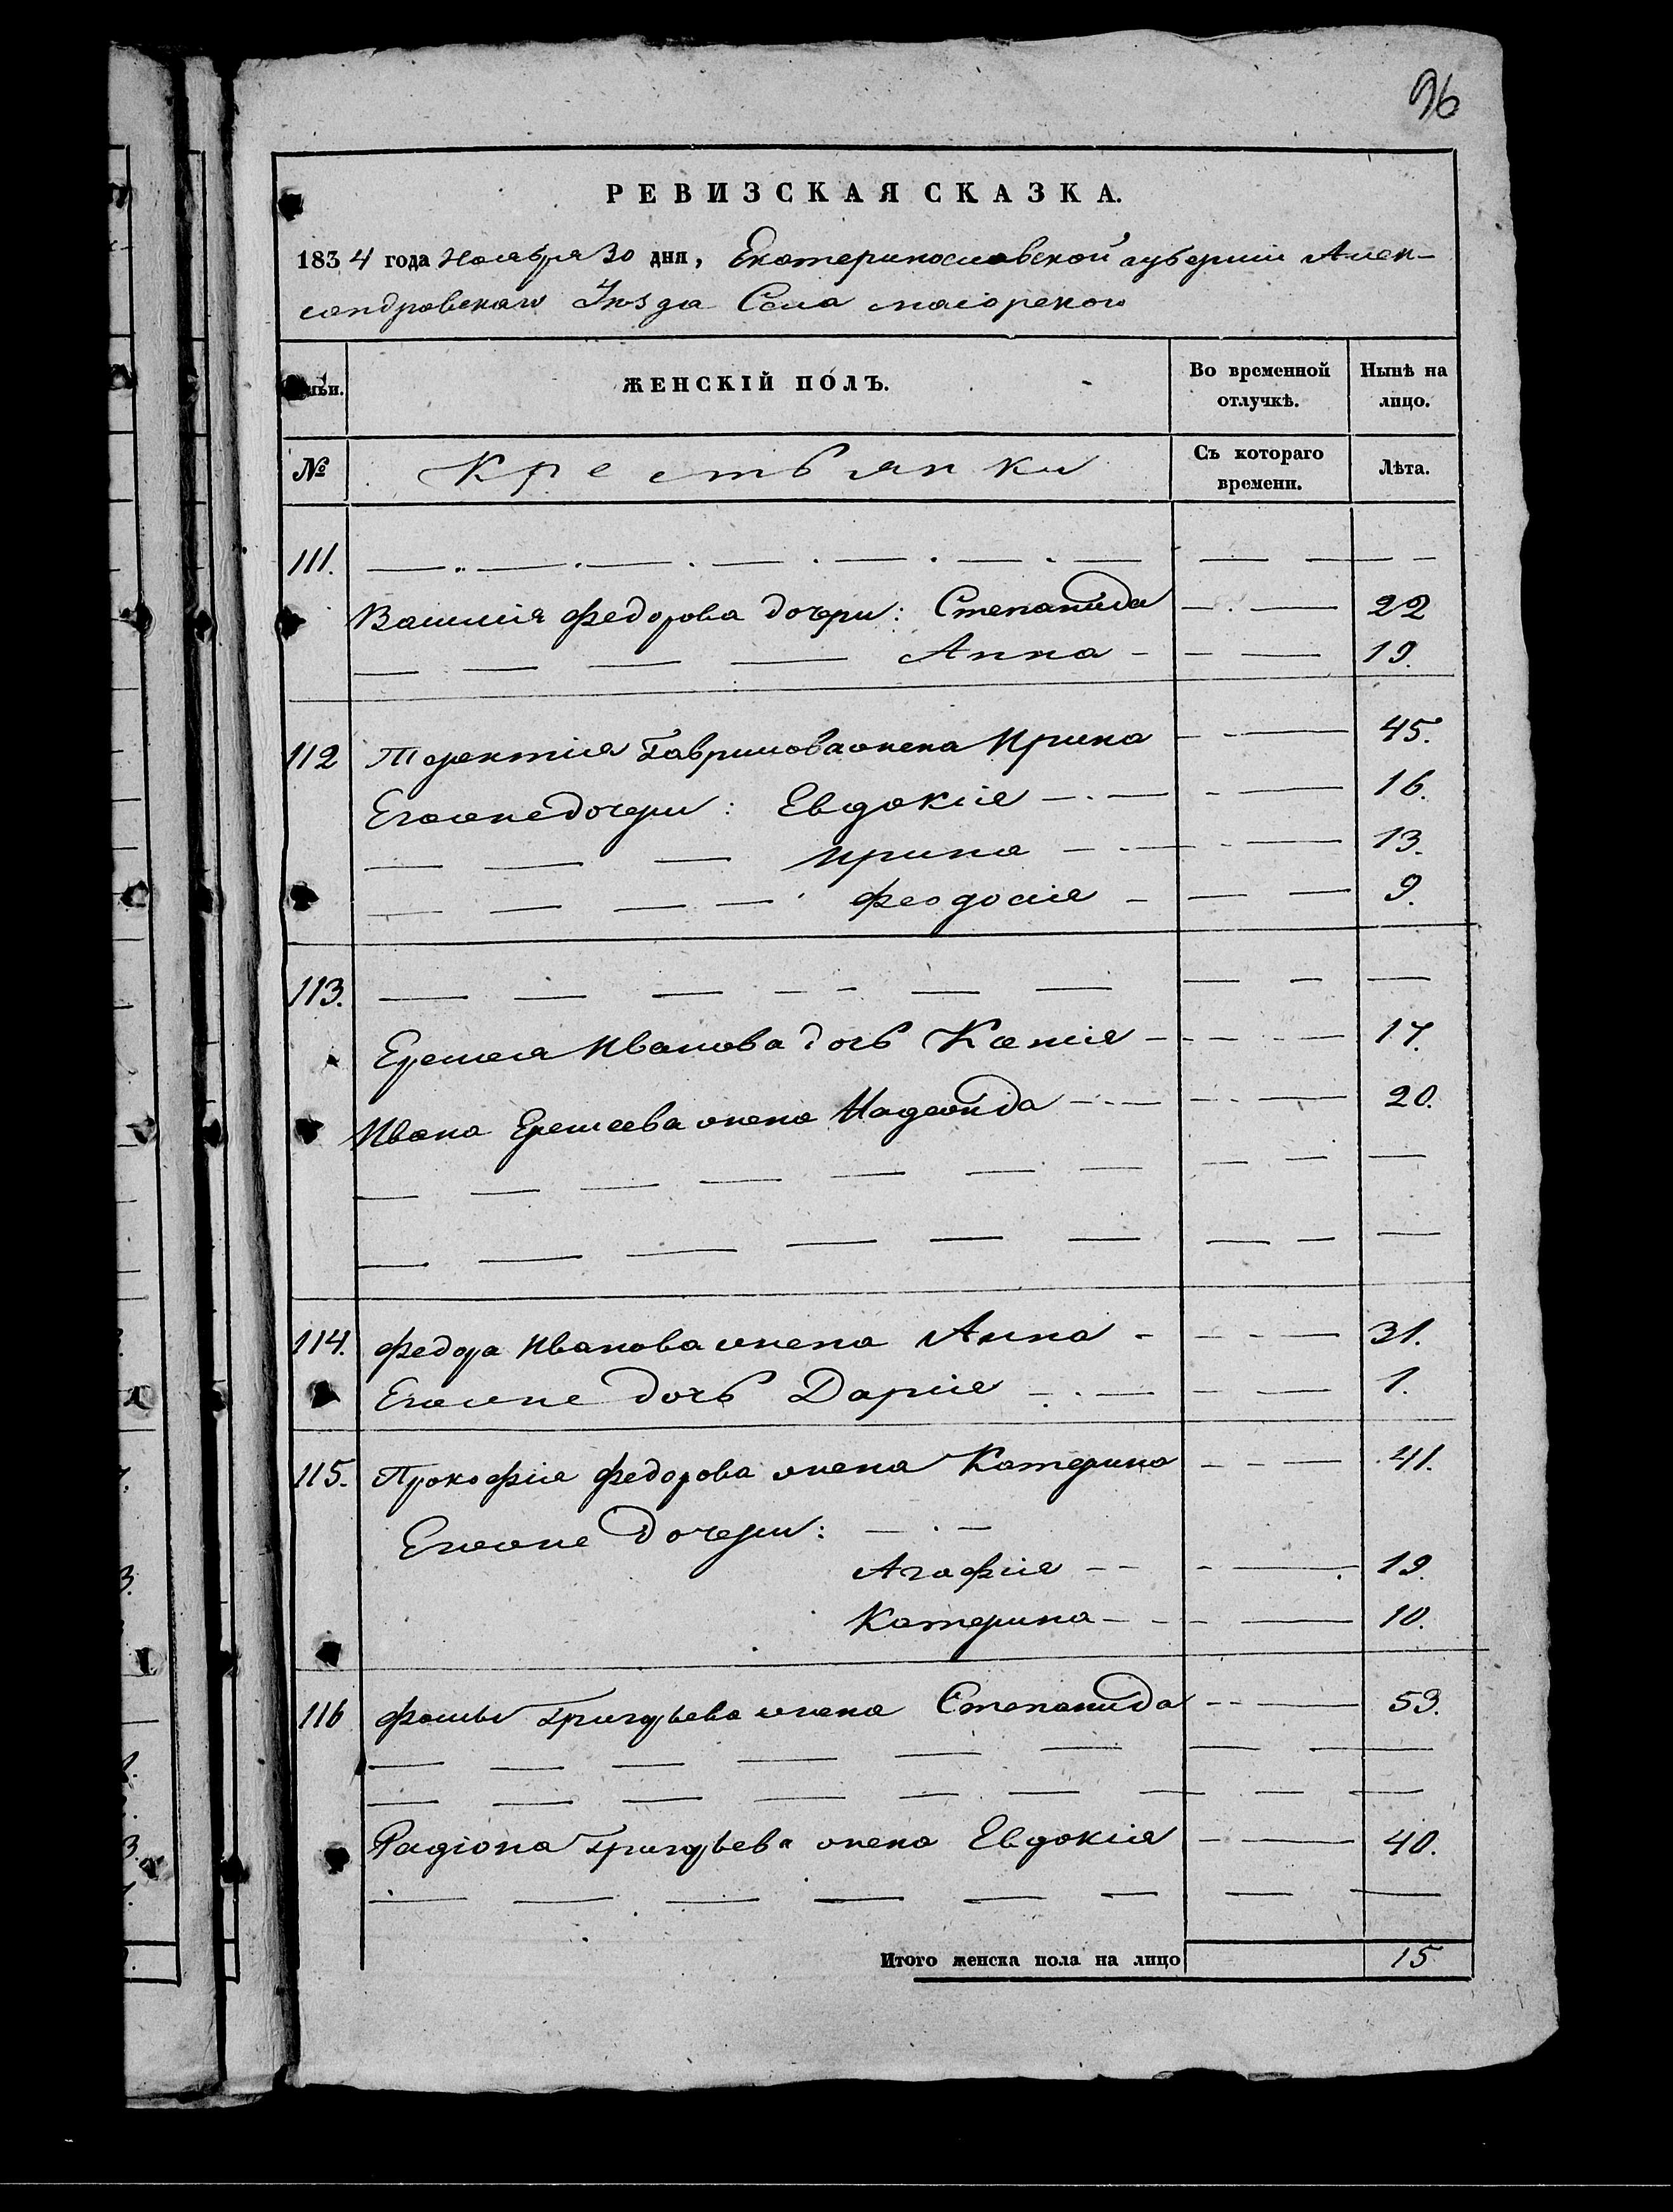 96
РЕВИЗСКАЯ СКАЗКА.
1834 года Ноября 30 дня, Екатеринославской губернии Алек-
сандровскаго Уѣзда Села маіорскаго
ЖЕНСКІЙ ПОЛЪ.
Во временной отлучкѣ.
Нынѣ на лицо.
№
Крестьянки
Съ котораго времени.
Лѣта.
111.
Василія Федорова дочери: Степанида 22
Анна 19.
112 Терентія Гаврилова жена Ирина 45.
Егожже дочери: Евдокія 16.
Ирина 13.
Феодосія 9.
113.
Еремея Иванова дочь Ксенія 17.
Ивана Еремеева жена 20.
114. Федора Иванова жена Анна 31.
Егоже дочь Дарія 1.
115. Прокофія Федорова жена Катерина 41.
Егоже дочери:
Агафія 19.
Катерина 10.
116 Фомы Григорьева жена Степанида 53.
Радіона Григорьева жена Евдокія 40.
Итого женска пола на лицо 15